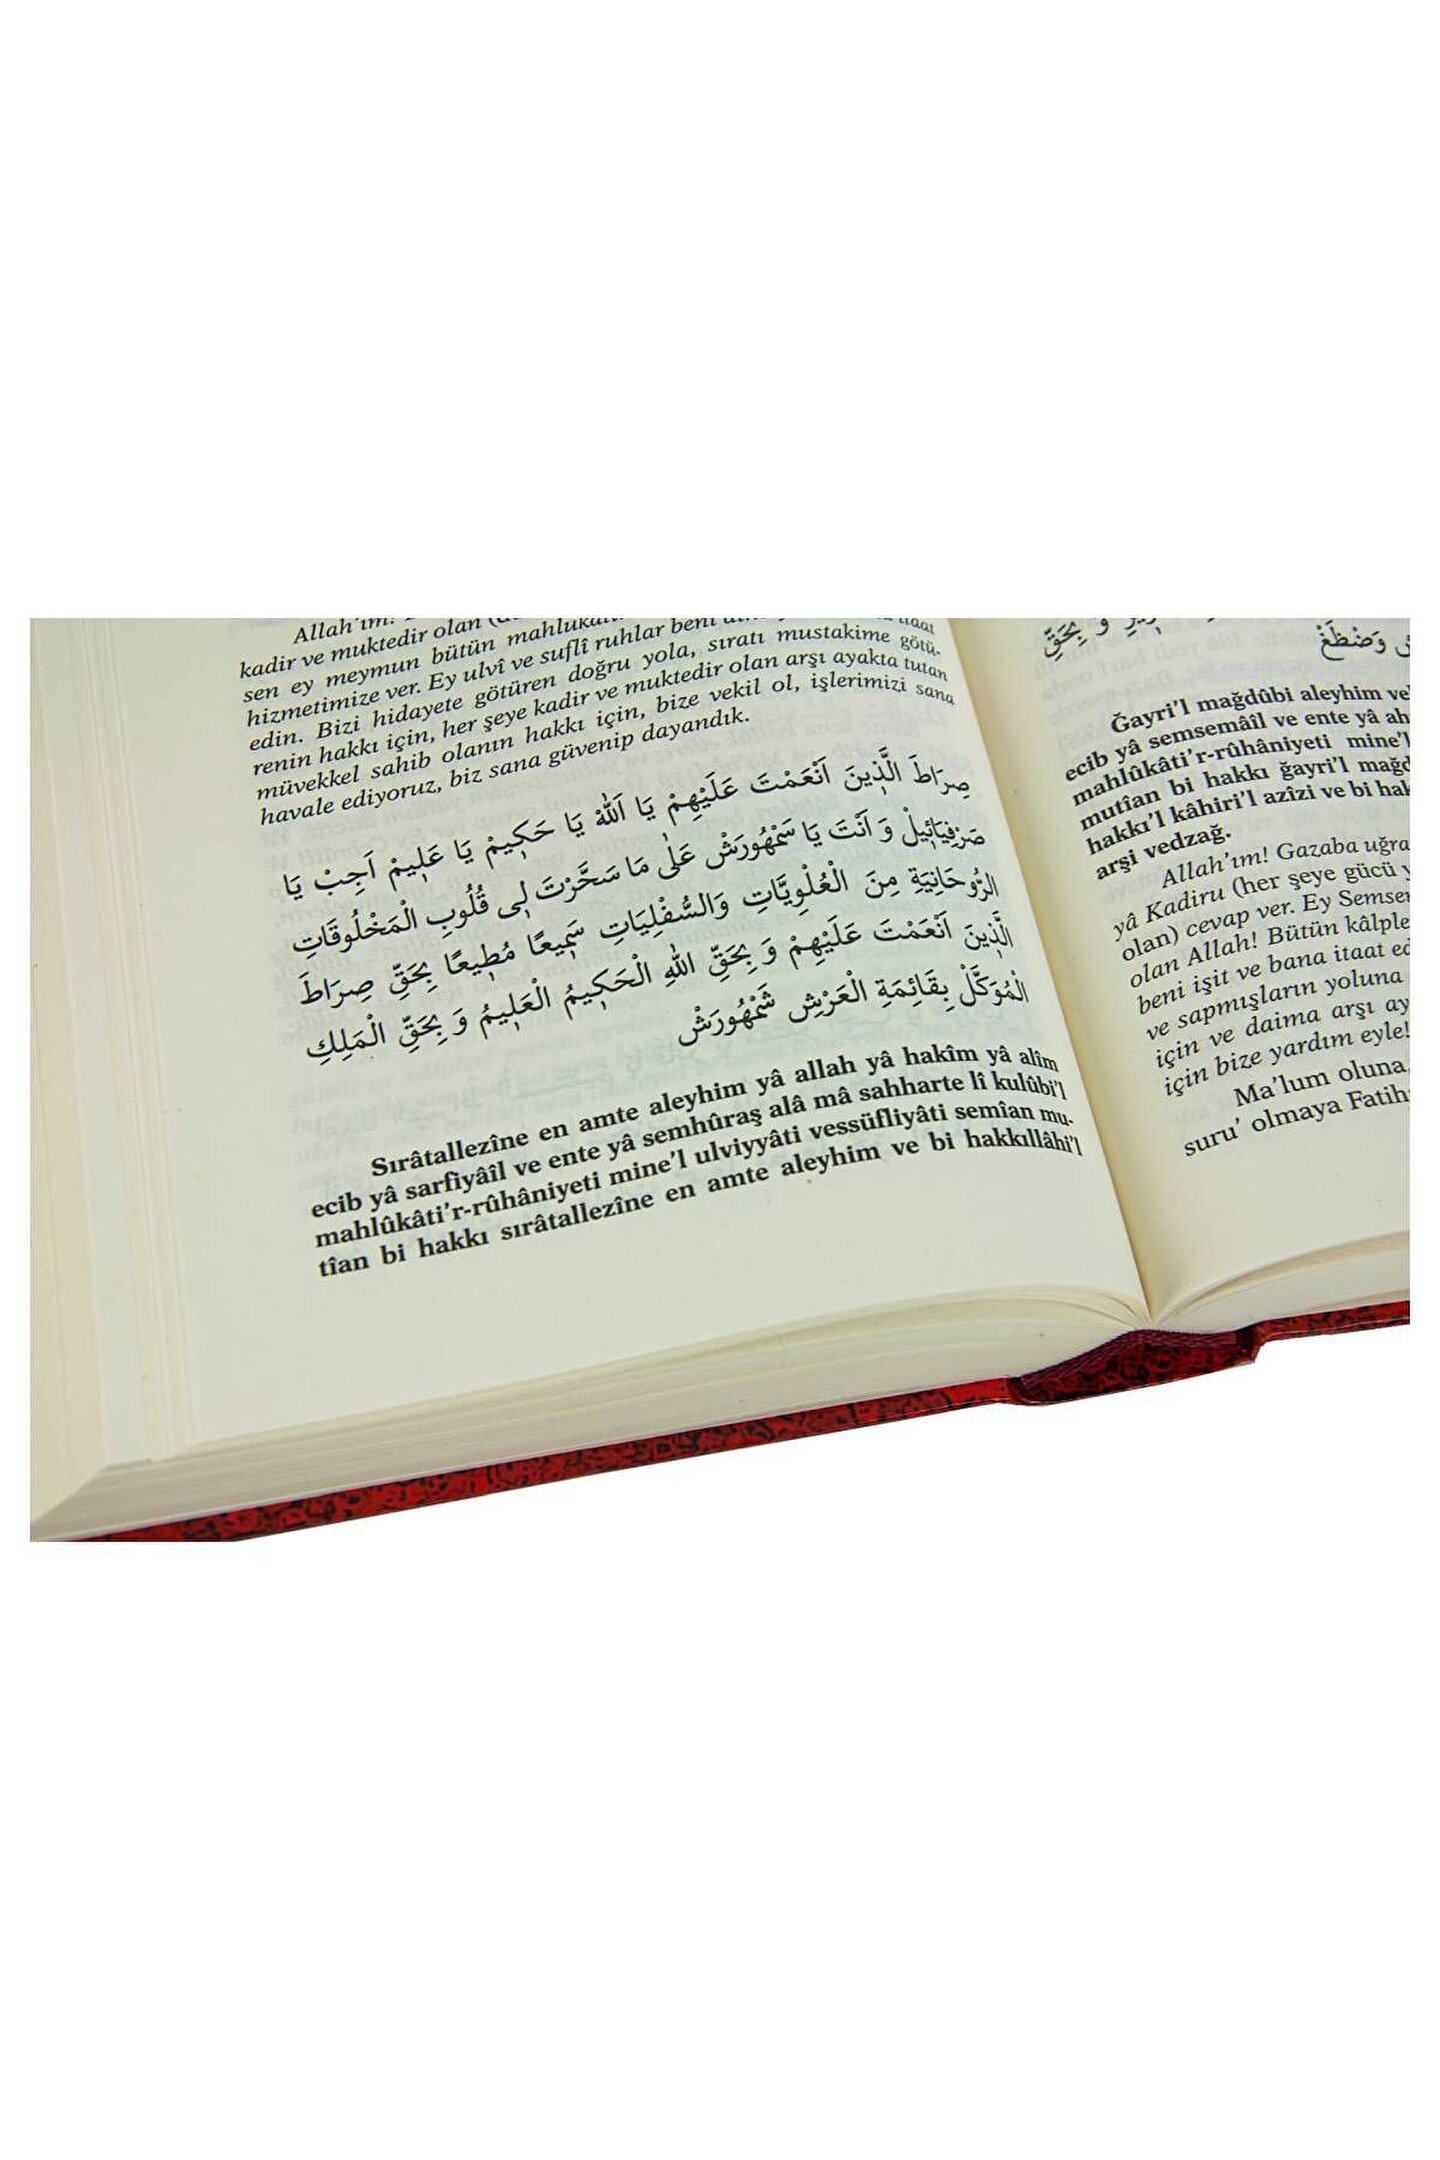 Allah'ım!
kadir ve muktedir olan
sen ey meymun bütün mahlukatı
hizmetimize ver. Ey ulvî ve suflî ruhlar beni
edin. Bizi hidayete götüren doğru yola, sıratı mustakime götü-
renin hakkı için, her şeye kadir ve muktedir olan arşı ayakta tutan
müvekkel sahib olanın hakkı için, bize vekil ol, işlerimizi sana
havale ediyoruz, biz sana güvenip dayandık.
صِرَاطَ الَّذِينَ اَنْعَمْتَ عَلَيْهِمْ يَا اَللهُ يَا حَكِيمْ يَا عَلِيمْ اَجِبْ يَا
صَرْفِيَائِيلْ وَ اَنْتَ يَا سَمْهُورَشْ عَلٰى مَا سَخَّرْتَ لِى قُلُوبِ الْمَخْلُوقَاتِ
الرُّوحَانِيَةِ مِنَ الْعُلْوِيَّاتِ وَالسُّفْلِيَاتِ سَمِيعًا مُطِيعًا بِحَقِّ صِرَاطَ
الَّذِينَ اَنْعَمْتَ عَلَيْهِمْ وَ بِحَقِّ اللهِ الْحَكِيمُ الْعَلِيمُ وَ بِحَقِّ الْمَلِكِ
الْمُوَكَّلْ بِقَائِمَةِ الْعَرْشِ شَمْهُورَشْ
Sırâtallezîne en amte aleyhim yâ allah yâ hakîm yâ alîm
ecib yâ sarfiyâîl ve ente yâ semhûraş alâ mâ sahharte lî kulûbi'l
mahlûkâti'r-rûhâniyeti mine'l ulviyyâti vessüfliyâti semîan mu-
tîan bi hakkı sırâtallezîne en amte aleyhim ve bi hakkıllâhi'l
وَ بِحَقِّ
وَضْظَغْ
Ğayri'l mağdûbi aleyhim
ecib yâ semsemâîl ve ente yâ
mahlûkâti'r-rûhâniyeti mine'l
mutîan bi hakkı ğayri'l
hakkı'l kâhiri'l azîzi ve bi
arşi vedzağ.
Allah'ım! Gazaba
yâ Kadiru (her şeye gücü
olan) cevap ver. Ey
olan Allah! Bütün
beni işit ve bana itaat
ve sapmışların yoluna
için ve daima arşı
için bize yardım eyle!
Ma'lum oluna,
suru' olmaya